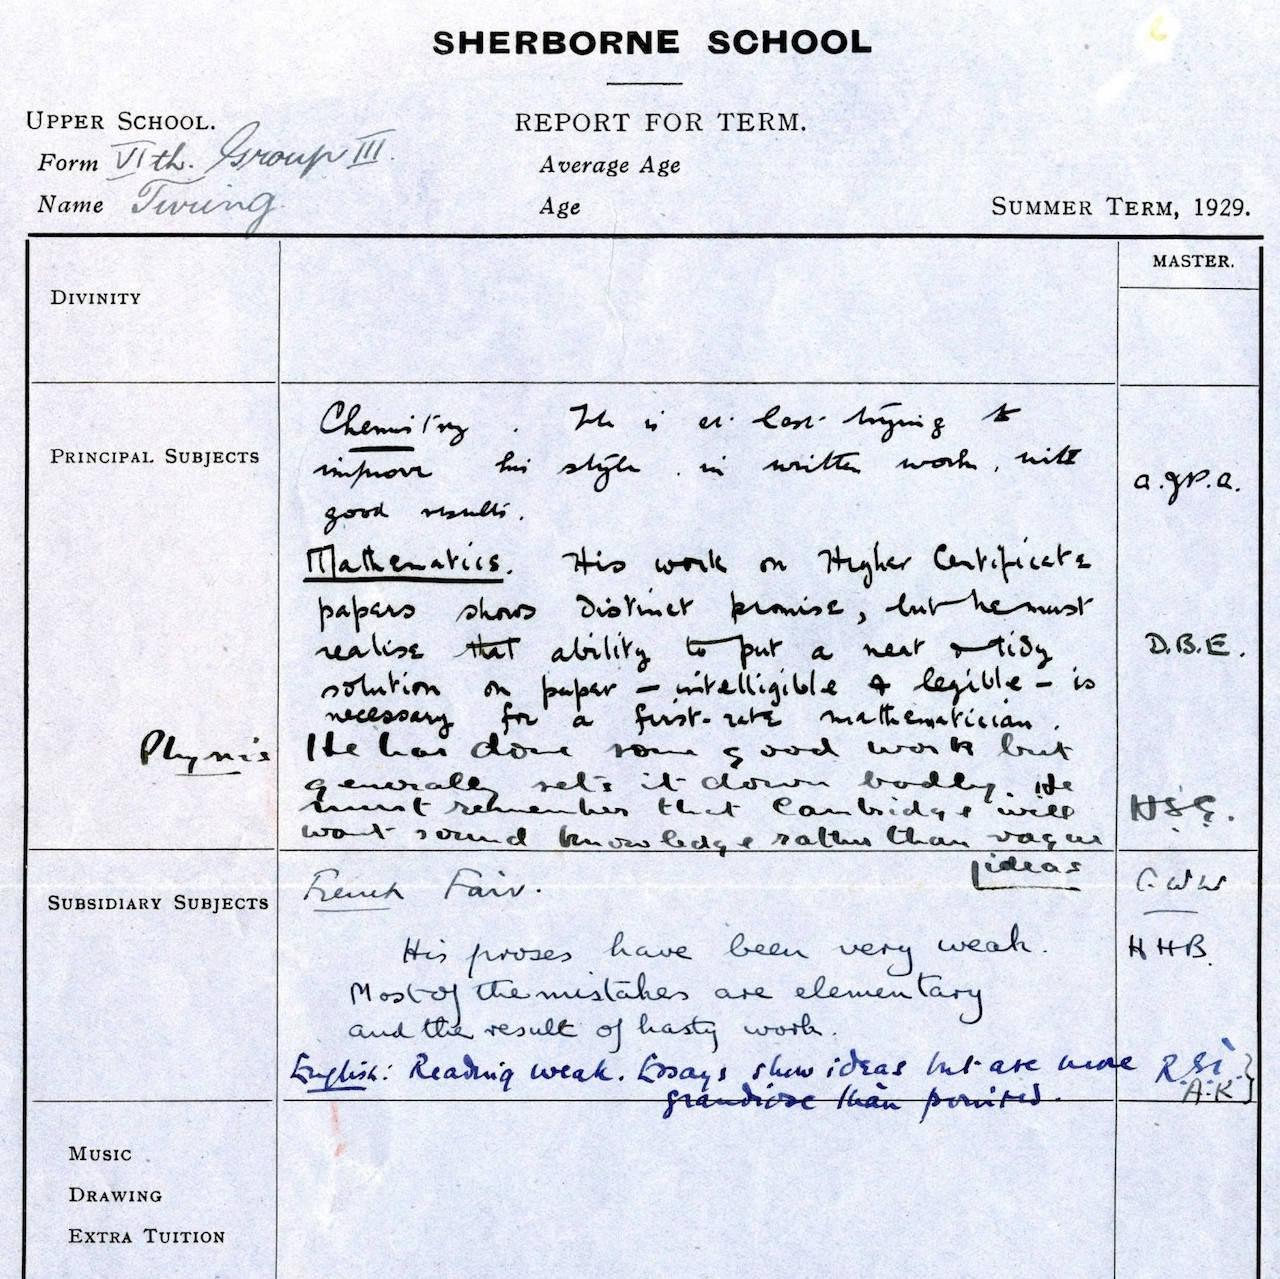 SHERBORNE SCHOOL
UPPER SCHOOL.
REPORT FOR TERM.
Form VIth. Group III.
Average Age
Name Turing
Age
SUMMER TERM, 1929.
MASTER.
DIVINITY
PRINCIPAL SUBJECTS
Chemistry. He is at last trying to
improve his style in written work, with
good results.
A.J.P.A.
Mathematics. His work on Higher Certificate
papers shows distinct promise, but he must
realise that ability to put a neat & tidy
solution on paper – intelligible & legible – is
necessary for a first-rate mathematician.
D.B.E.
Physics He has done some good work but
generally sets it down badly. He
must remember that Cambridge will
want sound knowledge rather than vague
ideas
H.S.G.
SUBSIDIARY SUBJECTS
French Fair.
C.W.W
His proses have been very weak.
HHB.
Most of the mistakes are elementary
and the result of hasty work.
English: Reading weak. Essays show ideas but are more
grandiose than
A.K
MUSIC
DRAWING
EXTRA TUITION